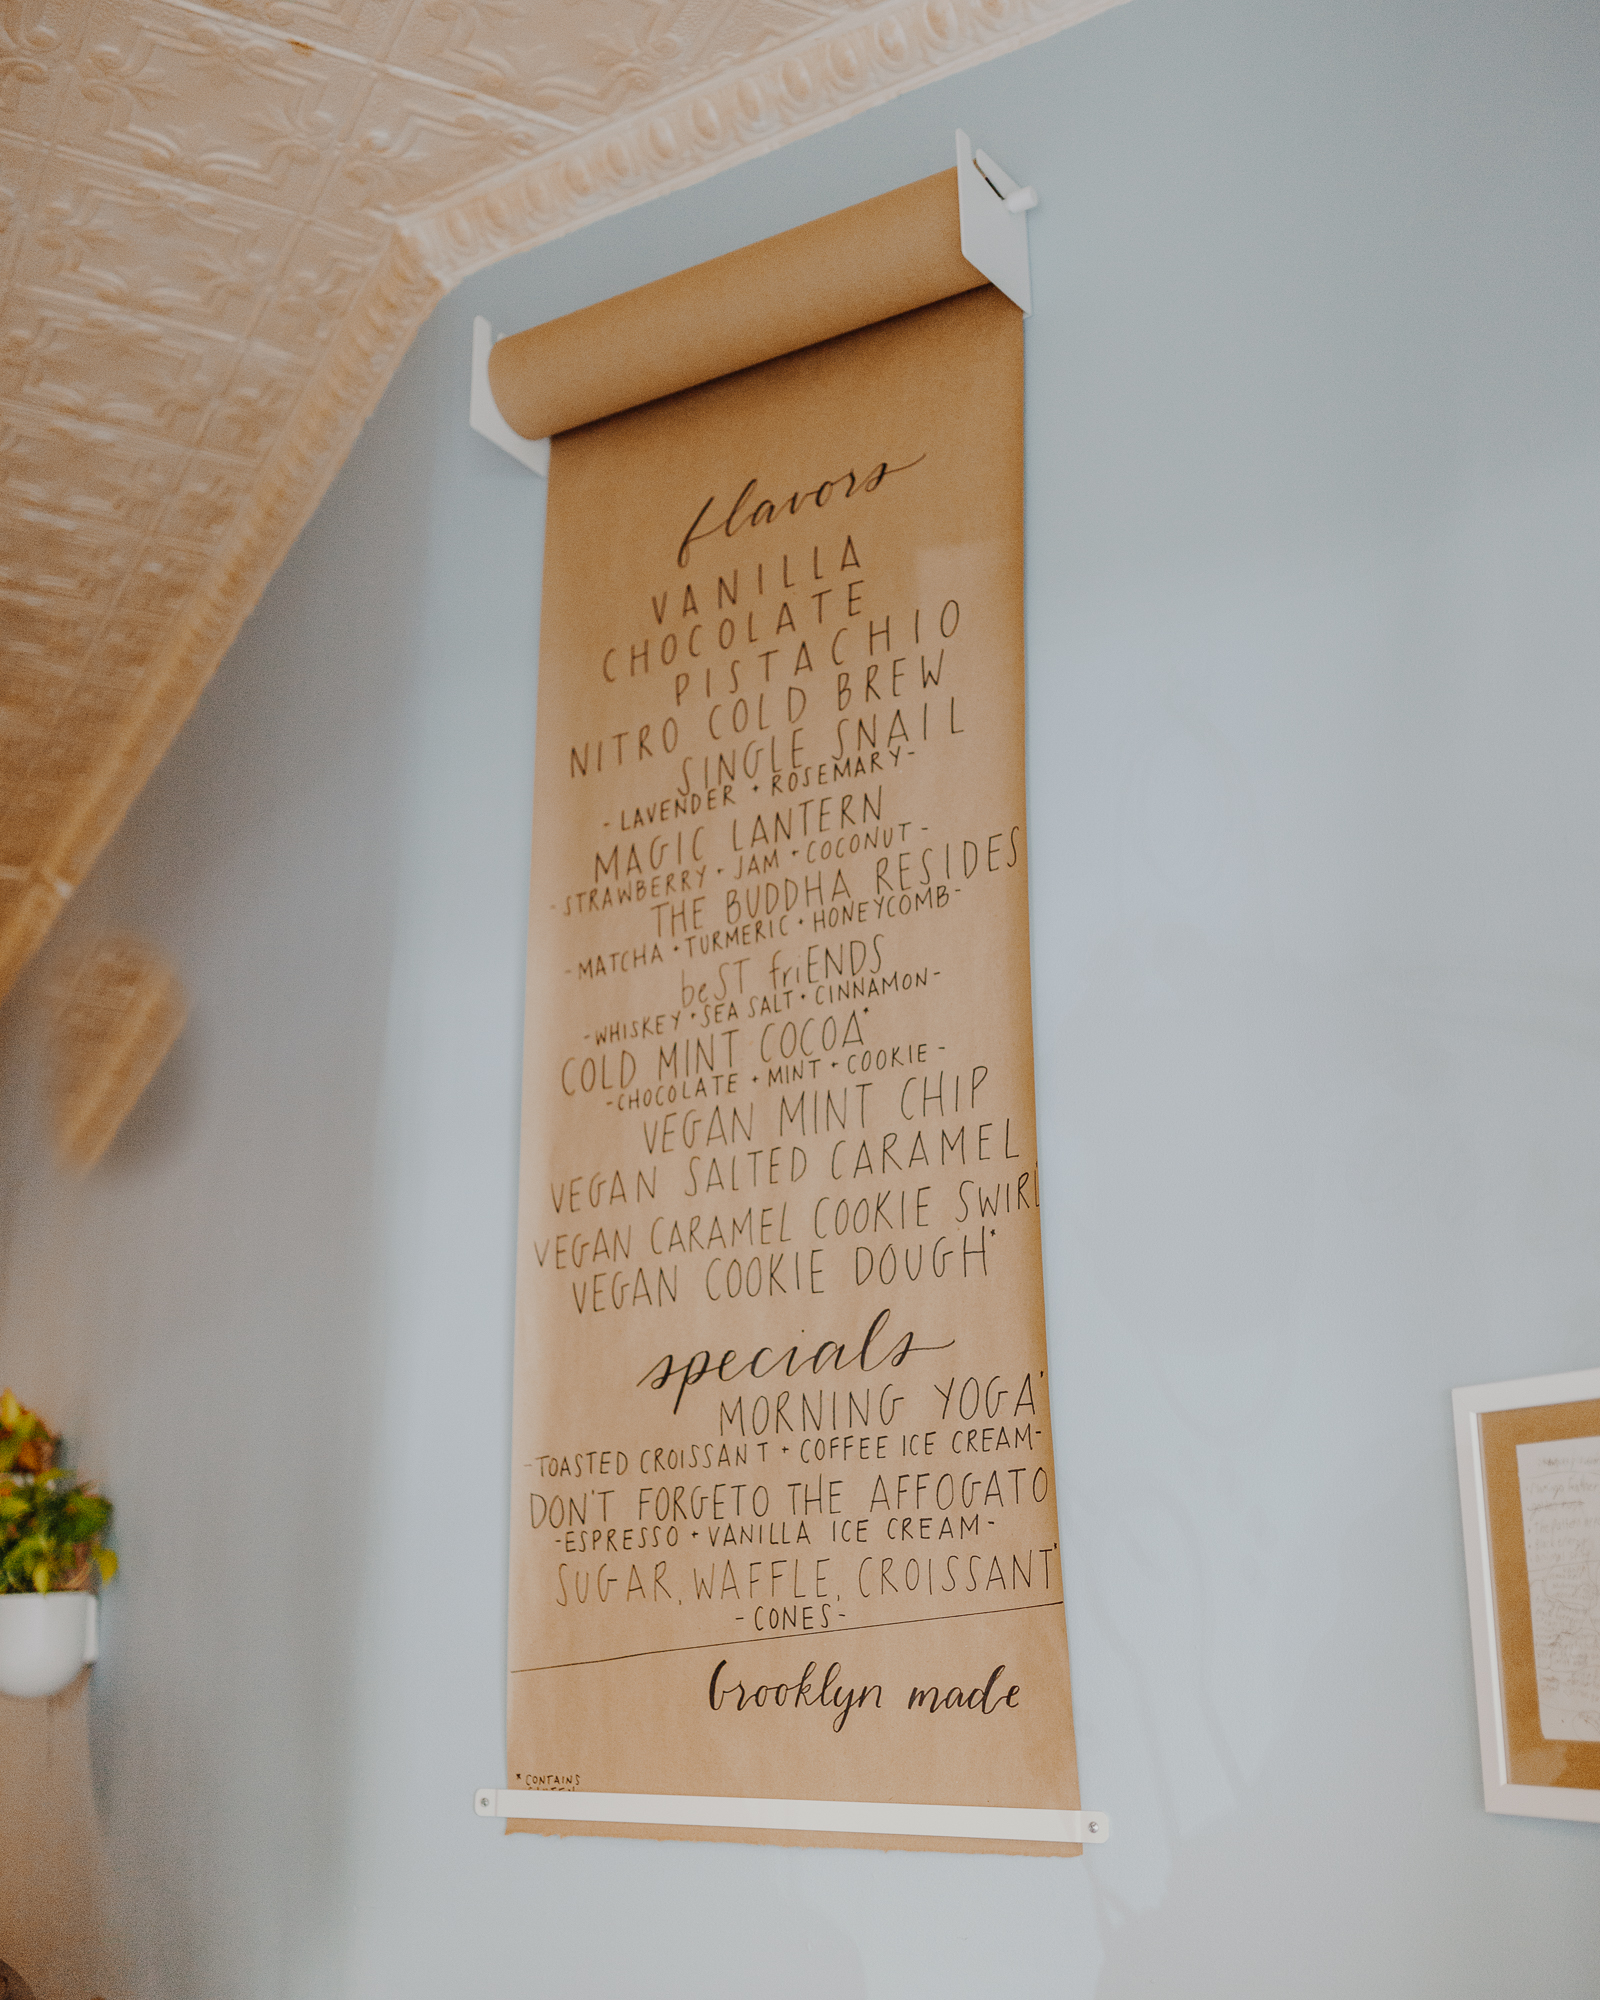 flavors
VANILLA
CHOCOLATE
PISTACHIO
NITRO COLD BREW
SINGLE SNAIL
- LAVENDER + ROSEMARY -
MAGIC LANTERN
- STRAWBERRY + JAM + COCONUT -
THE BUDDHA RESIDES
- MATCHA + TURMERIC + HONEYCOMB -
beST friENDS
- WHISKEY + SEA SALT + CINNAMON -
COLD MINT COCOA*
- CHOCOLATE + MINT + COOKIE -
VEGAN MINT CHIP
VEGAN SALTED CARAMEL
VEGAN CARAMEL COOKIE SWIRL
VEGAN COOKIE DOUGH*
specials
MORNING YOGA*
- TOASTED CROISSANT + COFFEE ICE CREAM -
DON'T FORGETO THE AFFOGATO
- ESPRESSO + VANILLA ICE CREAM -
SUGAR, WAFFLE, CROISSANT*
- CONES -
brooklyn made
* CONTAINS